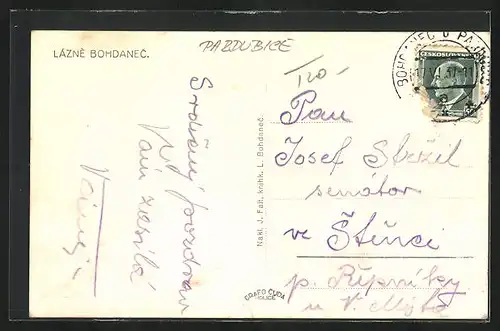 LÁZNĚ BOHDANEČ.
PARDUBICE
Srdečný pozdrav
Vám zasílá
Nakl. J. Fait, knihk. L. Bohdaneč.
GRAFO ČUDA
HOLICE
BOHDANEČ U PARDUBIC
ČESKOSLOVENSKO
Pan
Josef Stržil
senátor
ve Štěnci
p. Řepníky
u V. Mýta